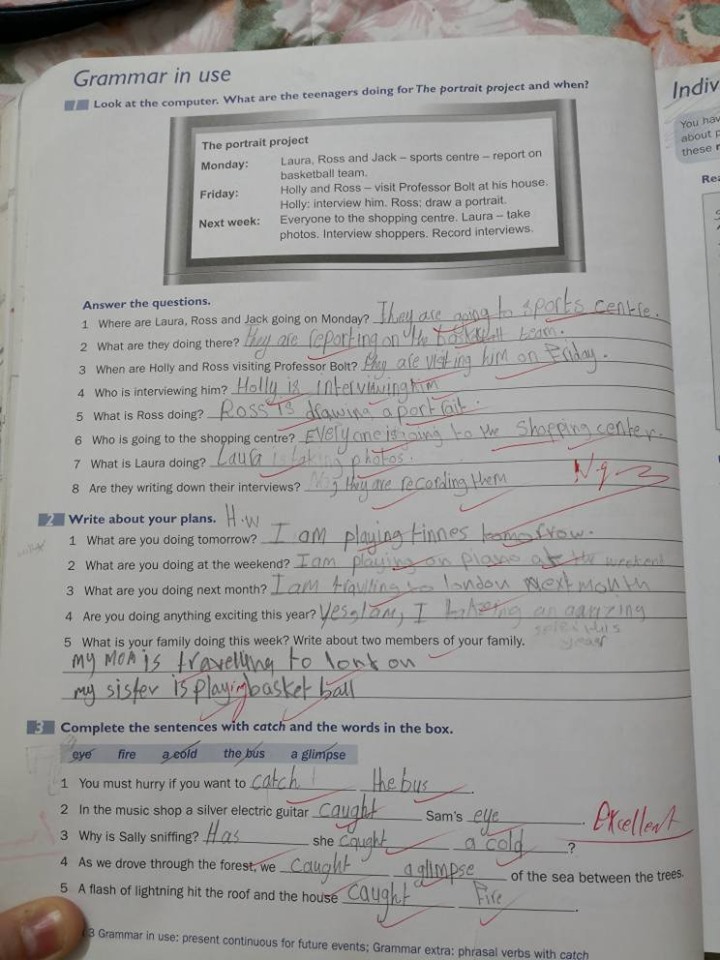 Grammar in use
1 Look at the computer. What are the teenagers doing for The portrait project and when?
The portrait project
Monday: Laura, Ross and Jack – sports centre – report on
basketball team.
Friday: Holly and Ross – visit Professor Bolt at his house.
Holly: interview him. Ross: draw a portrait.
Next week: Everyone to the shopping centre. Laura – take
photos. Interview shoppers. Record interviews.
Answer the questions.
1 Where are Laura, Ross and Jack going on Monday? They are going to sports centre.
2 What are they doing there? they are reporting on the basketball team.
3 When are Holly and Ross visiting Professor Bolt? they are visiting him on Friday.
4 Who is interviewing him? Holly is interviewing him
5 What is Ross doing? Ross is drawing a portrait.
6 Who is going to the shopping centre? Everyone is going to the shopping center.
7 What is Laura doing? Laura is taking photos.
8 Are they writing down their interviews? they are recording them
2 Write about your plans. H.W
1 What are you doing tomorrow? I am playing tinnes tomorrow.
2 What are you doing at the weekend? I am playing on piano at the weekend
3 What are you doing next month? I am travlling to london next month
4 Are you doing anything exciting this year? Yes, I am, I taking an amazing
this
year
5 What is your family doing this week? Write about two members of your family.
my mom is travelling to london
my sister is playing basket ball
3 Complete the sentences with catch and the words in the box.
eye fire a cold the bus a glimpse
1 You must hurry if you want to catch the bus.
2 In the music shop a silver electric guitar caught Sam's eye.
Excellent
3 Why is Sally sniffing? Has she caught a cold?
4 As we drove through the forest, we caught a glimpse of the sea between the trees.
5 A flash of lightning hit the roof and the house caught fire.
3 Grammar in use: present continuous for future events; Grammar extra: phrasal verbs with catch
Indiv
You hav
about p
these
Rea